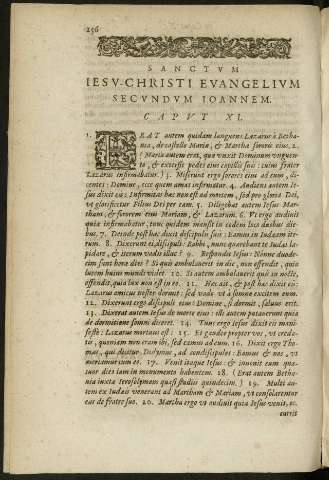 256
SANCTVM
IESV-CHRISTI EVANGELIVM
SECVNDVM IOANNEM.
CAPVT XI.
1. ERAT autem quidam languens Lazarus à Bethania, de castello Mariæ, & Marthæ sororis eius. 2.
( Maria autem erat, quæ vnxit Dominum vnguento, & extersit pedes eius capillis suis: cuius frater
Lazarus infirmabatur. ) 3. Miserunt ergo sorores eius ad eum, dicentes: Domine, ecce quem amas infirmatur. 4. Audiens autem Iesus dixit eis: Infirmitas hæc non est ad mortem, sed pro gloria Dei,
vt glorificetur Filius Dei per eam. 5. Diligebat autem Iesus Martham, & sororem eius Mariam, & Lazarum. 6. Vt ergo audiuit
quia infirmabatur, tunc quidem mansit in eodem loco duobus diebus. 7. Deinde post hæc dixit discipulis suis: Eamus in Iudæam iterum. 8. Dicunt ei discipuli: Rabbi, nunc quærebant te Iudæi lapidare, & iterum vadis illuc? 9. Respondit Iesus: Nonne duodecim sunt horæ diei? Si quis ambulauerit in die, non offendit, quia
lucem huius mundi videt. 10. Si autem ambulauerit in nocte,
offendit, quia lux non est in eo. 11. Hæc ait, & post hæc dixit eis:
Lazarus amicus noster dormit: sed vado vt à somno excitem eum.
12. Dixerunt ergo discipuli eius: Domine, si dormit, saluus erit.
13. Dixerat autem Iesus de morte eius: illi autem putauerunt quia
de dormitione somni diceret. 14. Tunc ergo Iesus dixit eis manifestè: Lazarus mortuus est. 15. Et gaudeo propter vos, vt credatis, quoniam non eram ibi, sed eamus ad eum. 16. Dixit ergo Thomas, qui dicitur Didymus, ad condiscipulos: Eamus & nos, vt
moriamur cum eo. 17. Venit itaque Iesus: & inuenit eum quatuor dies iam in monumento habentem. 18. (Erat autem Bethania iuxta Ierosolymam quasi stadiis quindecim.) 19. Multi autem ex Iudæis venerant ad Martham & Mariam, vt consolarentur
eas de fratre suo. 20. Martha ergo vt audiuit quia Iesus venit, oc-
currit